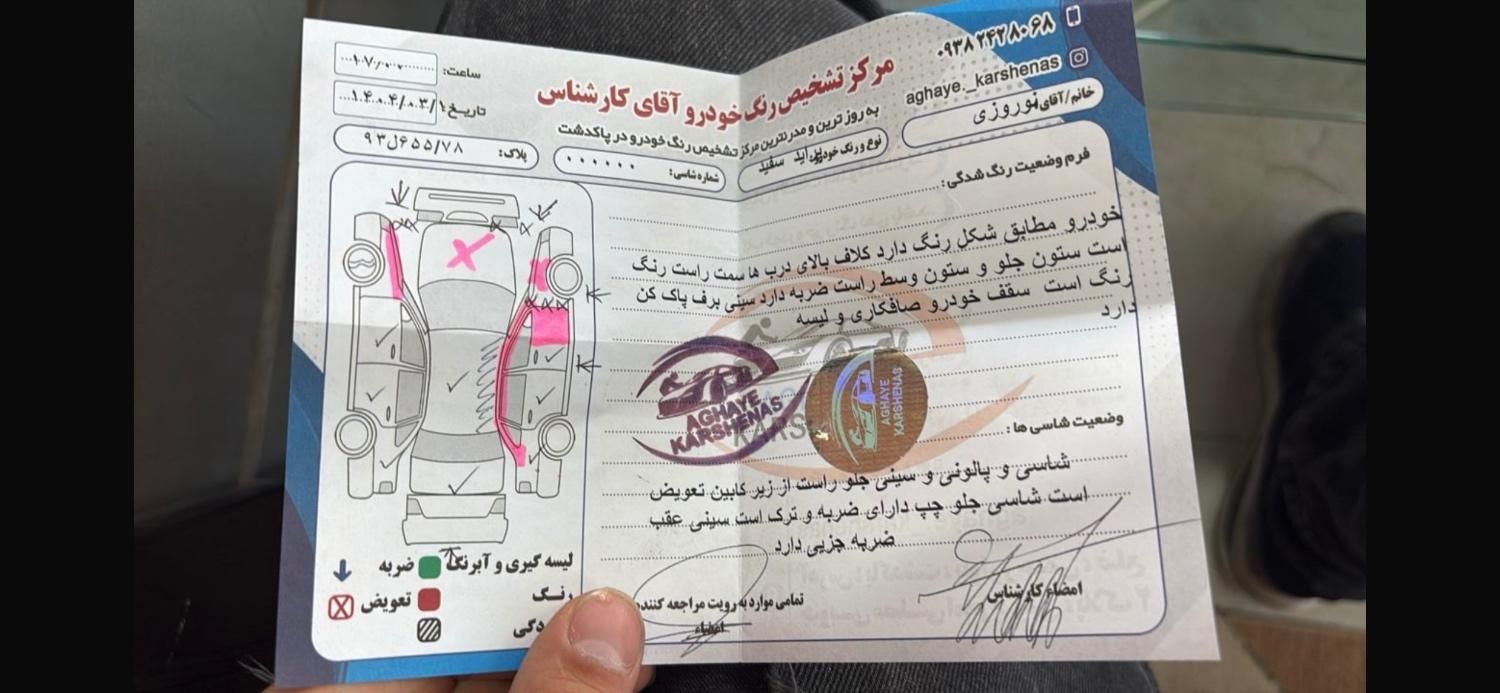 ۰۹۳۸ ۲۴۲ ۸۰۶۸
aghaye._karshenas
مرکز تشخیص رنگ خودرو آقای کارشناس
به روز ترین و مدرنترین مرکز تشخیص رنگ خودرو در پاکدشت
ساعت: ۱۷:۰۰
تاریخ: ۱۴۰۴/۰۳/۱
خانم/آقای: نوروزی
نوع و رنگ خودرو: پراید سفید
شماره شاسی: ۰۰۰۰۰۰
پلاک: ۹۳ل۶۵۵/۷۸
فرم وضعیت رنگ شدگی:
خودرو مطابق شکل رنگ دارد کلاف بالای درب ها سمت راست رنگ
است ستون جلو و ستون وسط راست ضربه دارد سینی برف پاک کن
رنگ است سقف خودرو صافکاری و لیسه
دارد
AGHAYE
KARSHENAS
AGHAYE
KARSHENAS
وضعیت شاسی ها:
شاسی و پالونی و سینی جلو راست از زیر کابین تعویض
است شاسی جلو چپ دارای ضربه و ترک است سینی عقب
ضربه جزیی دارد
لیسه گیری و آبرنگ
ضربه
رنگ
تعویض
دگی
تمامی موارد به رویت مراجعه کننده
امضاء
امضاء کارشناس